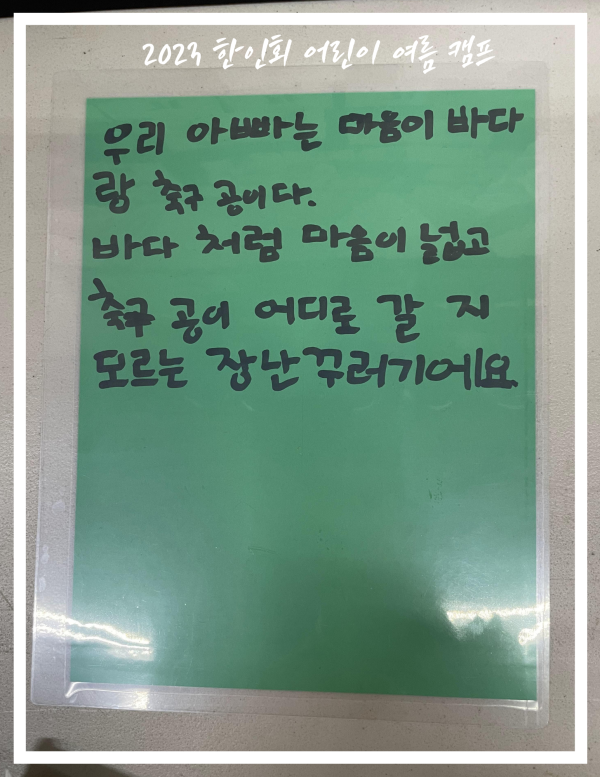 2023 한인회 어린이 여름 캠프
우리 아빠는 마음이 바다
랑 축구 공이다.
바다 처럼 마음이 넓고
축구 공이 어디로 갈 지
모르는 장난꾸러기에요.